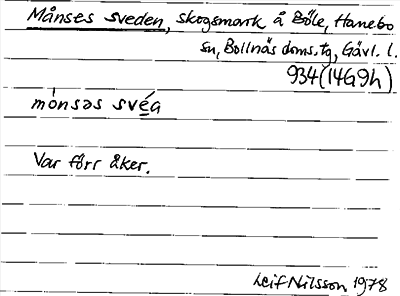 Månses sveden, skogsmark å Böle, Hanebo
sn, Bollnäs doms. tg, Gävl. l.
934 (14G9h)
mónsəs svéa
Var förr åker.
Leif Nilsson 1978